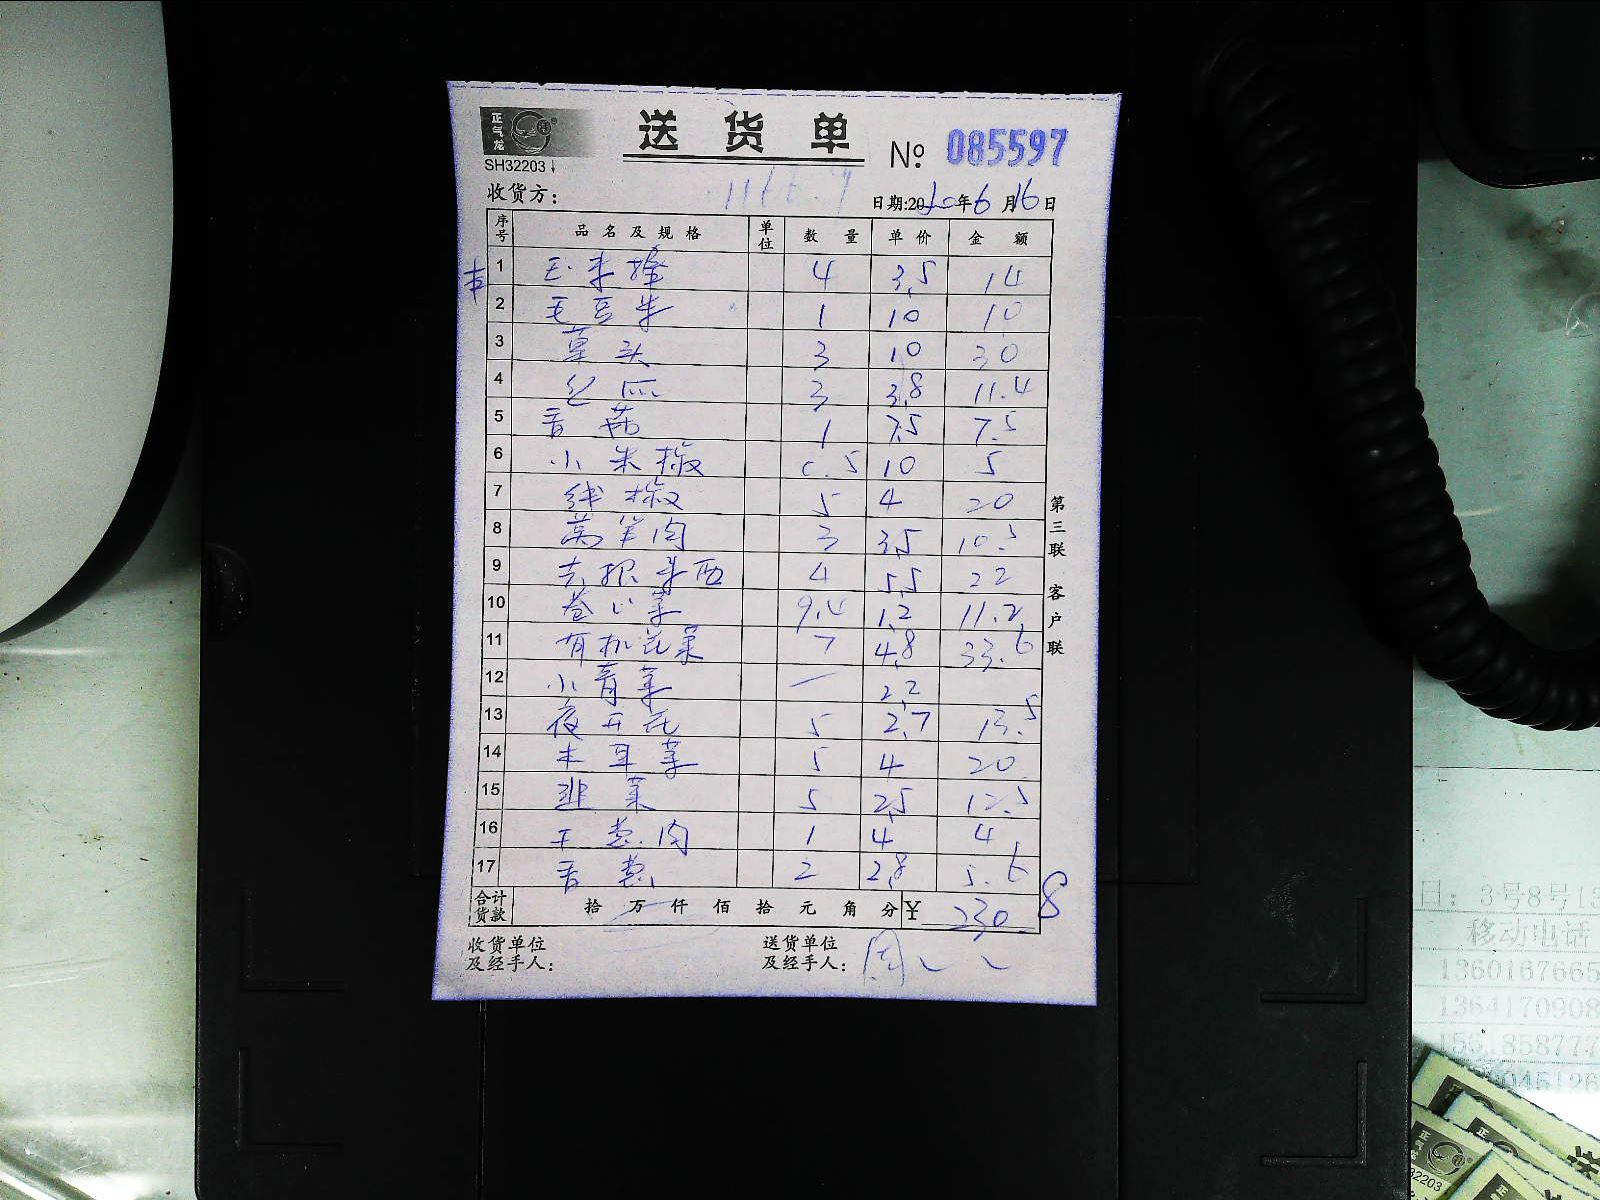 正气龙
SH32203
送货单
No 085597
收货方:
日期:2020年6月16日
序号 品名及规格 单位 数量 单价 金额
1 玉米 4 3.5 14
2 毛豆米 1 10 10
3 草头 3 10 30
4 丝瓜 3 3.8 11.4
5 香菇 1 7.5 7.5
6 小米椒 0.5 10 5
7 线椒 5 4 20
8 莴笋肉 3 3.5 10.5
9 去根米西 4 5.5 22
10 卷心菜 9.4 1.2 11.2
11 有机花菜 7 4.8 33.6
12 小青菜 一 2.2
13 夜开花 5 2.7 13.5
14 木耳菜 5 4 20
15 韭菜 5 2.5 12.5
16 干葱肉 1 4 4
17 香葱 2 2.8 5.6
合计货款 拾万仟佰拾元角分 ¥ 230.8
收货单位及经手人:
送货单位及经手人: 周
第三联 客户联
日: 3号8号13
移动电话
1360167665
1364170908
045126
正气龙
32203